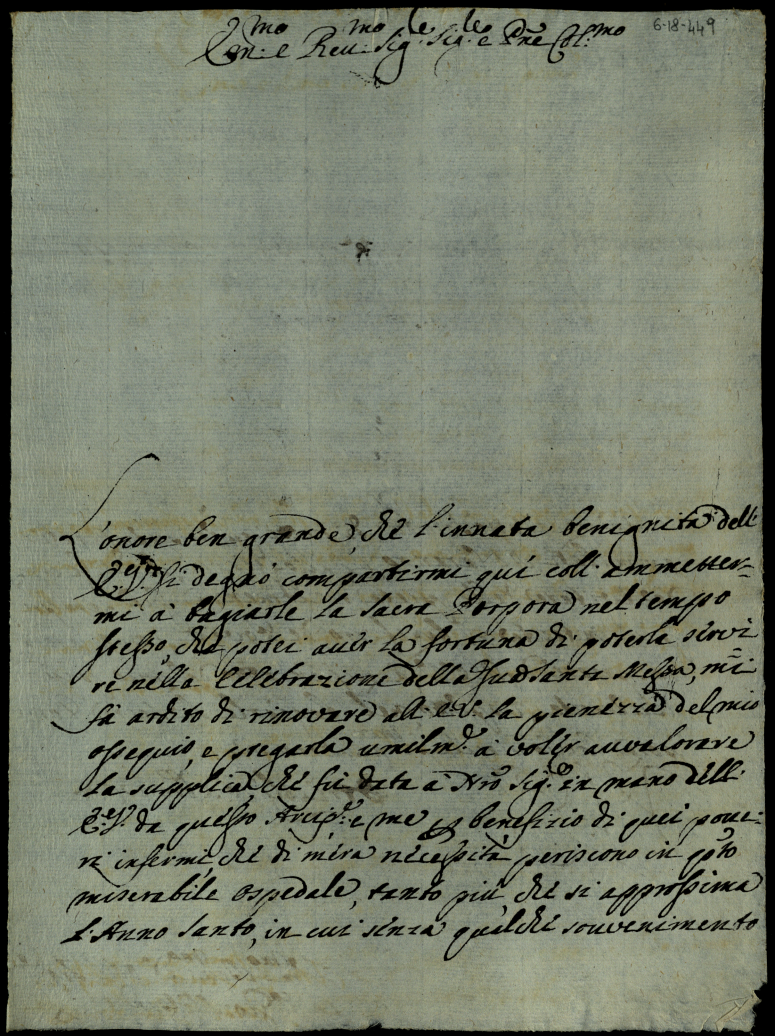 6-18-449
Em:mo e Reu:mo Sig:le Sig:le e Pñe Col:mo
L'onore ben grande, che l'innata benignità dell'
E.V. si degnò compartirmi qui coll'ammetter=
mi à bagiarle la sacra Porpora nel tempo
stesso, che potei aver la fortuna di poterla servi
re nella Celebrazione della Sua Santa Messa, mi
fà ardito di rinovare all'E.V. la pienezza del mio
ossequio, e pregarla umilm.e à voler avvalorare
la supplica, che fù data à Nro Sig.re in mano dell'
E.V. da questo Arcip.e e me per benefizio di quei poue=
ri infermi, che di mera necessità periscono in q̃sto
miserabile ospedale, tanto più che si approssima
l'Anno Santo, in cui senza qualche souvenimento